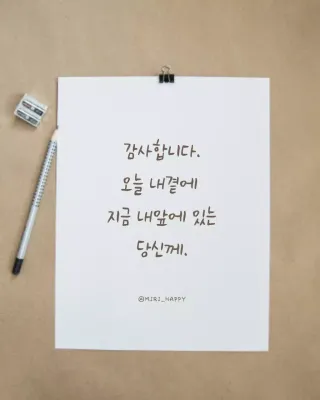 감사합니다.
오늘 내곁에
지금 내앞에 있는
당신께.
@MIRI_HAPPY